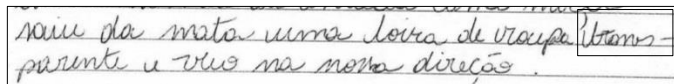 saiu da mata uma loira de roupa trans-
parente e veio na nossa direção.